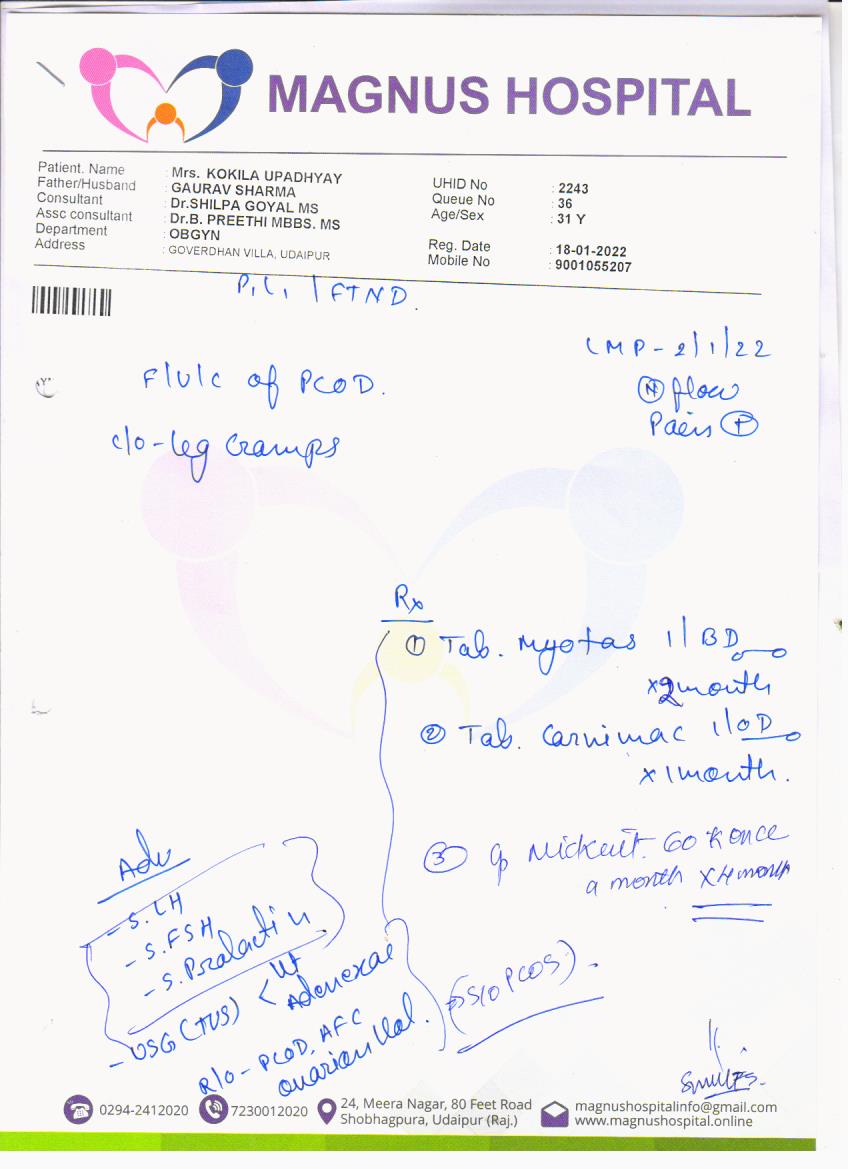 MAGNUS HOSPITAL
Patient. Name : Mrs. KOKILA UPADHYAY
Father/Husband : GAURAV SHARMA
Consultant : Dr.SHILPA GOYAL MS
Assc consultant : Dr.B. PREETHI MBBS. MS
Department : OBGYN
Address : GOVERDHAN VILLA, UDAIPUR
UHID No : 2243
Queue No : 36
Age/Sex : 31 Y
Reg. Date : 18-01-2022
Mobile No : 9001055207
P1L1 / FTND.
LMP - 2/1/22
N flow
Pain +
F/U/C of PCOD.
C/O - leg cramps
Rx
① Tab. Myotas 1/ BD
x 2 month
② Tab. Carnimac 1/ OD
x 1 month.
③ 60K once
a month x 4 month
Adv
- S. LH
- S. FSH
- S. Prolactin
- USG (TVS) < Ut
Adenexae
R/O - PCOD, AFC
ovarian Vol.
S/O PCOS).
0294-2412020
7230012020
24, Meera Nagar, 80 Feet Road
Shobhagpura, Udaipur (Raj.)
magnushospitalinfo@gmail.com
www.magnushospital.online